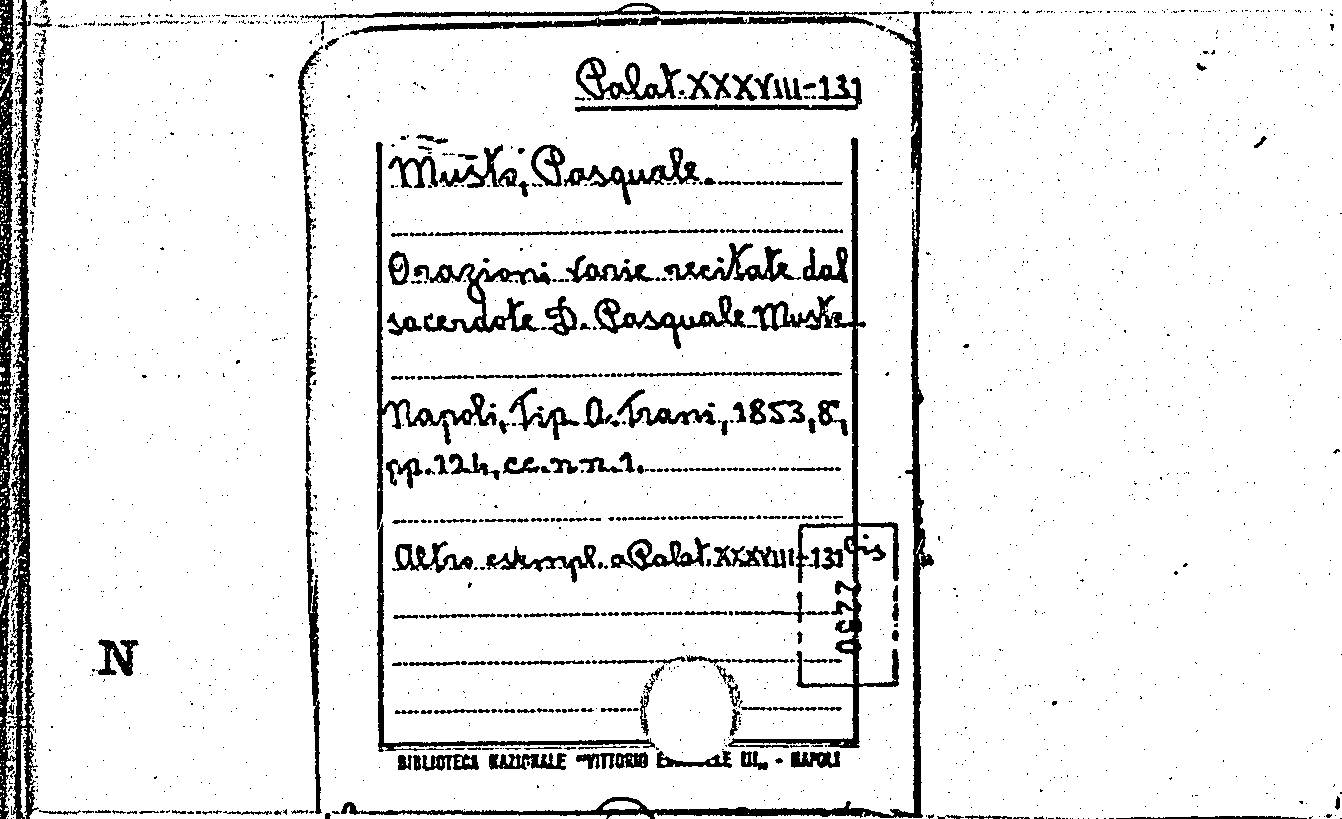 Palat. XXXVIII-131
Musto, Pasquale.
Orazioni varie recitate dal
sacerdote D. Pasquale Musto.
Napoli, Tip. A. Trani, 1853, 8°,
pp. 124, cc. n n. 1.
Altro esempl. a Palat. XXXVIII-131 bis
2250
N
BIBLIOTECA NAZIONALE "VITTORIO III„ - NAPOLI